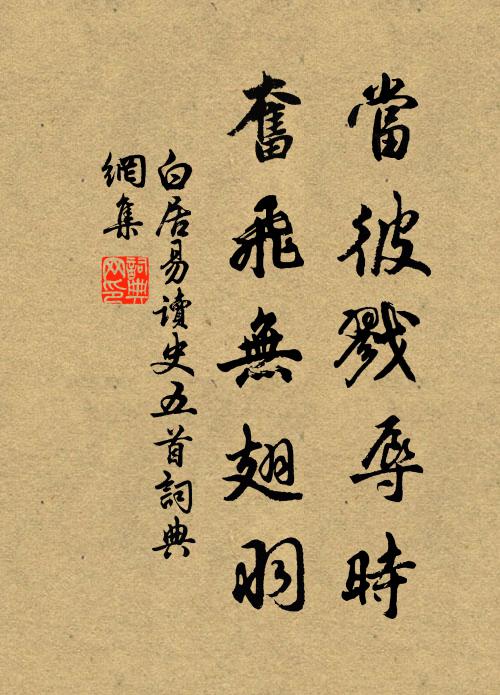 當彼戮辱時
奮飛無翅羽
白居易讀史五首詞典
網集
詞典
网印